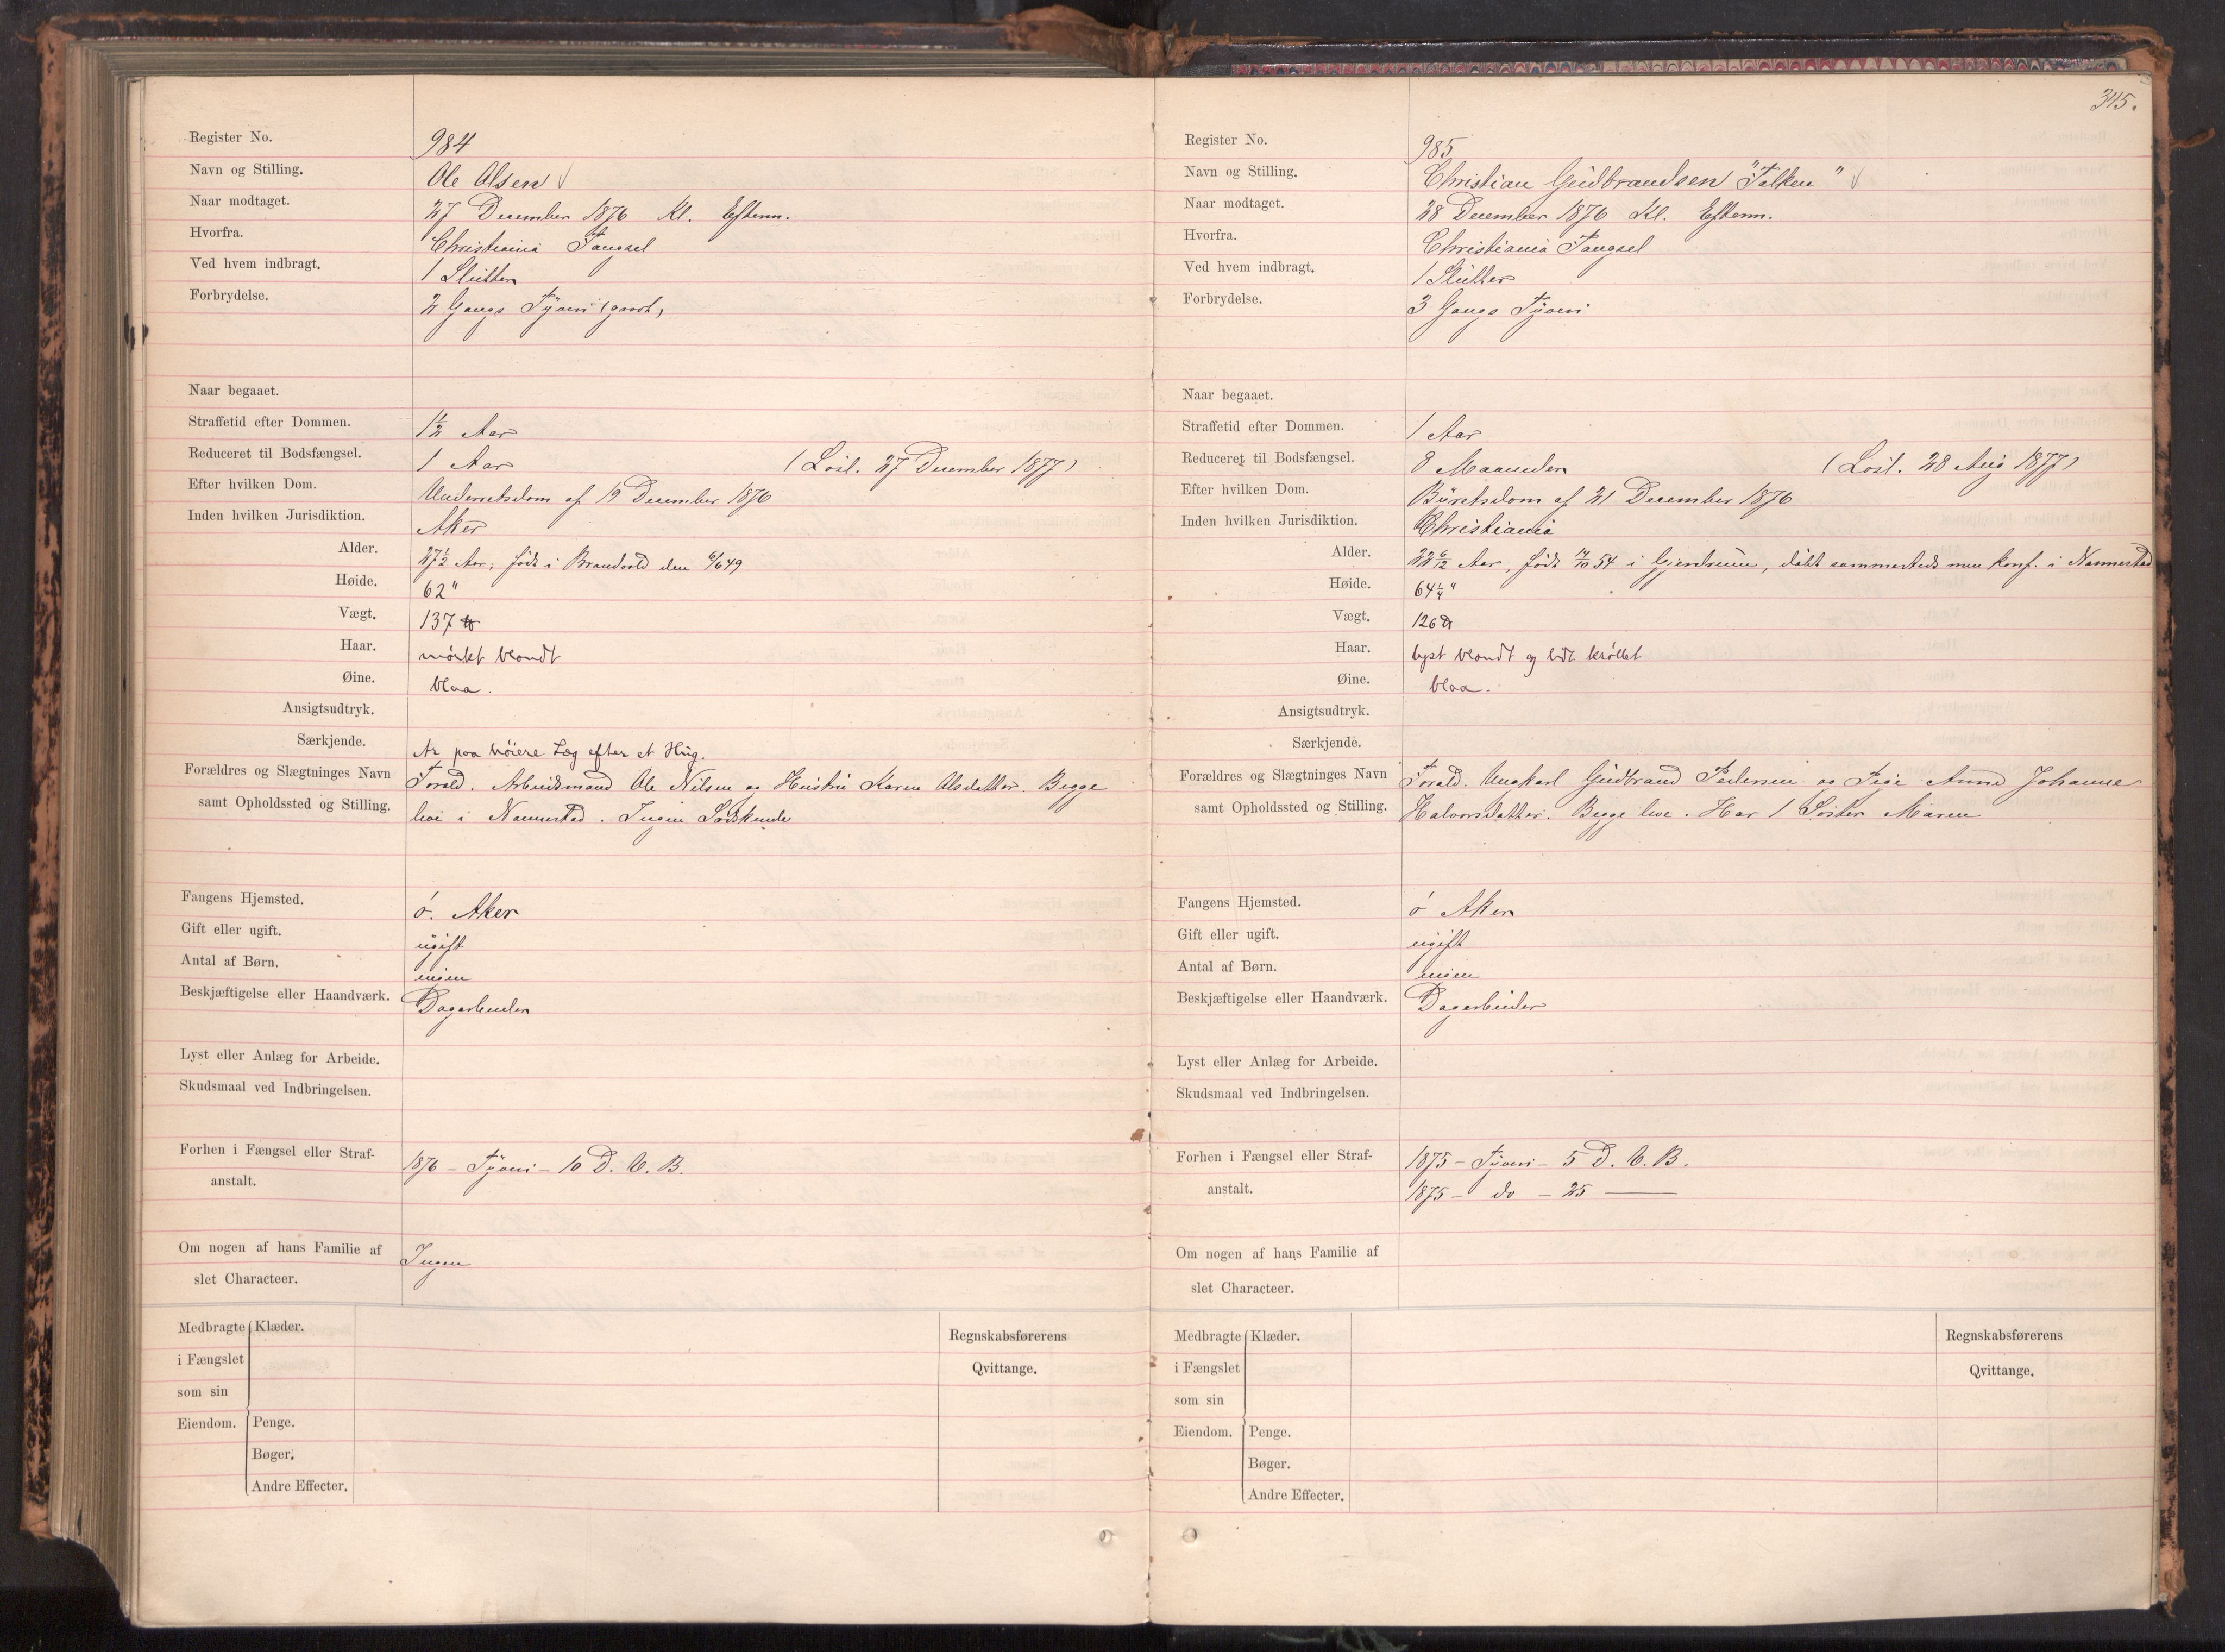 Register No. 984
Navn og Stilling. Ole Olsen
Naar modtaget. 27 December 1876 Kl. Efterm.
Hvorfra. Christiania Fængsel
Ved hvem indbragt. 1 Slutter
Forbrydelse. 2 Gangs Tyveri (grovt)
Naar begaaet.
Straffetid efter Dommen. 1½ Aar
Reduceret til Bodsfængsel. 1 Aar (Løsl. 27 December 1877)
Efter hvilken Dom. Underretsdom af 19 December 1876
Inden hvilken Jurisdiktion. Aker
Alder. 27½ Aar, født i Brandvold den 6/6 49
Høide. 62"
Vægt. 137 ℔
Haar. mørkt blondt
Øine. blaa.
Ansigtsudtryk.
Særkjende. Ar paa høiere Læg efter et Hug.
Forældres og Slægtninges Navn Foræld. Arbeidsmand Ole Nilsen og Hustru Karen Olsdatter. Begge
samt Opholdssted og Stilling. leve i Nannestad. Ingen Sødskende
Fangens Hjemsted. ø. Aker
Gift eller ugift. ugift
Antal af Børn. ingen
Beskjæftigelse eller Haandværk. Dagarbeider
Lyst eller Anlæg for Arbeide.
Skudsmaal ved Indbringelsen.
Forhen i Fængsel eller Straf- 1876 – Tyveri – 10 D. V. B.
anstalt.
Om nogen af hans Familie af Ingen
slet Characteer.
Medbragte Klæder. Regnskabsførerens
i Fængslet Qvittange.
som sin
Eiendom. Penge.
Bøger.
Andre Effecter.
345.
Register No. 985
Navn og Stilling. Christian Gudbrandsen "Falken"
Naar modtaget. 28 December 1876 Kl. Efterm.
Hvorfra. Christiania Fængsel
Ved hvem indbragt. 1 Slutter
Forbrydelse. 3 Gangs Tyveri
Naar begaaet.
Straffetid efter Dommen. 1 Aar
Reduceret til Bodsfængsel. 8 Maaneder (Løsl. 28 Aug 1877)
Efter hvilken Dom. Byretsdom af 21 December 1876
Inden hvilken Jurisdiktion. Christiania
Alder. Aar, født 54 i Gjerdrum, døbt sammesteds men konf. i Nannestad
Høide. 64¼"
Vægt. 126 ℔
Haar. lyst blondt og lidt krøllet
Øine. blaa.
Ansigtsudtryk.
Særkjende.
Forældres og Slægtninges Navn Foræld. Ungkarl Gudbrand Pedersen og Pige Anne Johanne
samt Opholdssted og Stilling. Halvorsdatter. Begge leve. Har 1 Søster Maren
Fangens Hjemsted. ø Aker
Gift eller ugift. ugift
Antal af Børn. ingen
Beskjæftigelse eller Haandværk. Dagarbeider
Lyst eller Anlæg for Arbeide.
Skudsmaal ved Indbringelsen.
Forhen i Fængsel eller Straf- 1875 – Tyveri – 5 D. V. B.
anstalt. 1875 – do – 25 —
Om nogen af hans Familie af
slet Characteer.
Medbragte Klæder. Regnskabsførerens
i Fængslet Qvittange.
som sin
Eiendom. Penge.
Bøger.
Andre Effecter.